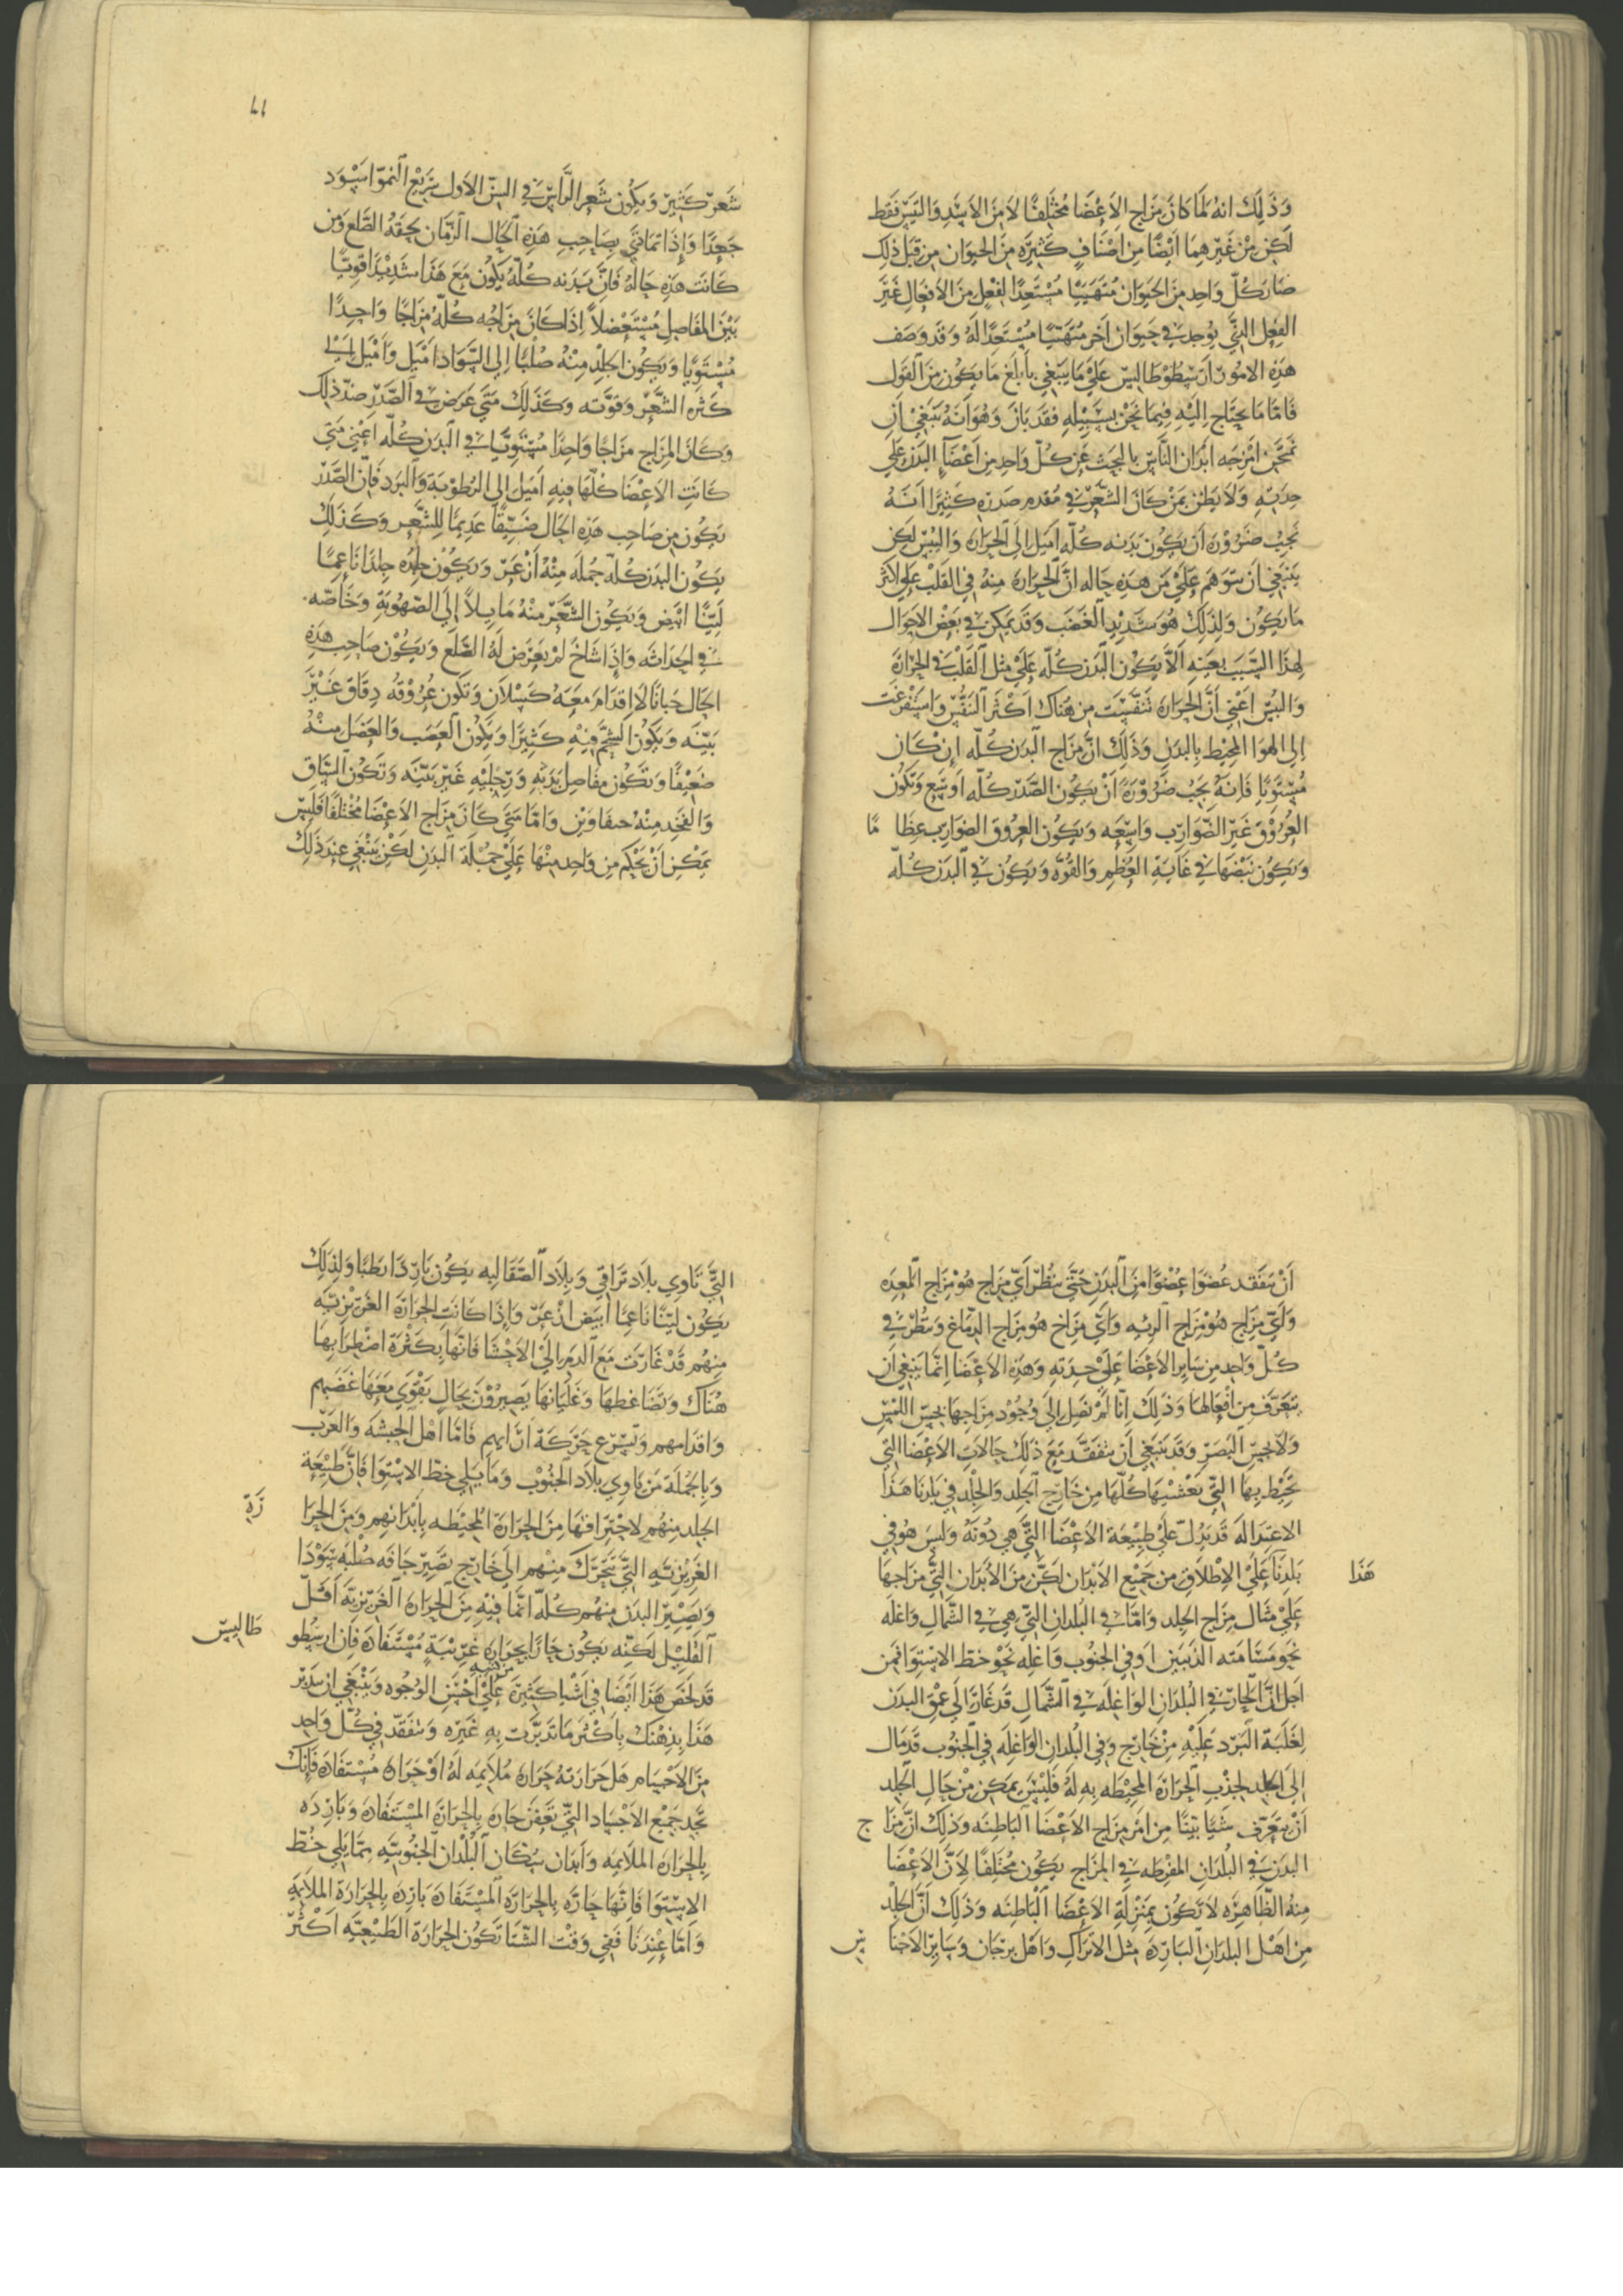 وَذَلِكَ انهُ لَمَا كَانَ مِزَاج الاَعْضَا مُختَلِفًا لاَ مِنَ الاَسَدِ وَاليَبَس فَقَط
لَكِن مِنْ غَيْرِهِمَا اَيْضًا مِن اَصْنَافٍ كَثِيرَه مِنَ الحيَوَان مِن قِبَل ذلِكَ
صَارَ كُلّ وَاحِدٍ مِنَ الحيَوَان مُتَهَيّئًا مُسْتَعِدًا لفعْلٍ مِنَ الاَفعَالِ غَيْرَ
الفِعْل الذَّي يُوجَد في حَيوَان اخَر مُتَهَيّئًا مُسْتَعِدًا لَهُ وَقَد وَصَف
هَذِهِ الامُور ارَسْطُوطَاليسَ عَلَي مَا يَنبَغِي بأَبلَغ مَا يَكُون مِنَ القَول
فَامّا مَا يحتَاج اليَهِ فيمَا نَحْنُ بسَبِيلِهِ فقَد بَانَ وَهُوَ انَهُ يَنبَغِي اَن
تمتَحِن امْزجَه ابدَان النَّاسِ بالبحَث عَن كُلّ وَاحِدٍ مِن اَعْضَآءِ البَدَن عَلَي
حِدَتِهِ وَلاَ يَظُن بمَنْ كَانَ الشَّعْرُ في مُقدم صَدرِهِ كَثِيرًا انَهُ
يَجبُ ضَرُورَه اَن يَكُون بَدَنه كُلّه اَميَل الَى الحَرَارَه وَاليُبْس لَكِن
يَنبَغي اَن يتَوَهَم عَلَي مَن هَذِه حَاله انَّ الحَرَارَه مِنهُ في القَلْبِ عَلَي اكثَر
مَا يَكُون وَلِذلِكَ هُوَ شَدِيْد الغَضَب وَقَد يَمكِن في بَعْض الاحوَال
لِهذَا السَّبَب بعَينِهِ اَلاَّ يَكُون البَدَن كُلّه عَلَي مثل القَلْب في الحَرَارَه
وَاليُبْس اَعْنِي اَنَّ الحَرَارَه تَنَفّسَت مِن هُنَاكَ اَكثَر النَفُّس وَاسْتَفْرَغَت
اِلي الهوَا المحِيط بِالبدَن وَذَلِكَ انَّ مِزَاج البَدَن كُلّه اِن كَان
مُسْتَويًا فَانهُ يَجبُ ضَرُورَهً اَنْ يَكُون الصَّدْر كُلّه اَوسَع وَتكُون
العرُوْق غَيْر الضَّوَارِب وَاسِعَه وَيَكُون العرُوق الضوَارِب عِظَا مًا
وَيَكُون نَبْضهَا في غَايَهِ العُظْمِ وَالقُوَّه وَيَكُون في البَدَن كُلّه
شَعَرٌ كَثِير وَيَكُون شَعر الرَّاس في السِن الاَول سَرِيْع النموّ اسْوَد
جَعدًا وَاِذَا تمَادَى بِصَاحِبِ هَذِهِ الحَال الزَمَان يَلحَقهُ الصَّلَع وَمَن
كَانَت هَذِه حَالهُ فَانَّ بَدَنه كُلّهُ يَكُون مَعَ هَذَا شَدِيْدًا قَوِيًّا
بَيّن المفَاصِل مُسْتَعْضلاً اِذَا كَانَ مِزَاجُه كُلّهُ مِزَاجًا وَاحِدًا
مُسْتَوِيًا وَيَكُون الجِلْد مِنْهُ صُلبًا اِلى السَّوَاد اَمْيَل وَاَمْيَل اِلى
كَثرَه الشَّعْر وَقُوَّته وَكَذَلِكَ مَتَي عَرَض في الصَّدْر ضدّ ذلِكَ
وَكَانَ المزَاج مزَاجًا وَاحِدًا مُسْتَوِيًّا في البَدَن كُلّه اَعْنِي مَتَي
كَانَتِ الاَعْضَا كُلّهَا فِيهِ اَميَل الى الرُطُوبَة وَالبَرد فَانّ الصَّدْر
يَكُون مِن صَاحِب هَذِه الحَال ضَيّقًا عَدِيْمًا لِلشَّعْر وَكَذَلِكَ
يَكُون البدَن كُلّه جمُلَه مِنْهُ ازْعَرَّ وَيَكُون جِلْده جِلدًا نَاعِمًا
لَيّنًا ابيَض وَيَكُون الشَّعْر مِنْهُ مَايِلاً اِلَى الصّهُوبَةِ وَخَاصّه
في احَدَاثِه وَاِذَا شَاخَ لَمْ يَعرِض لَهُ الصَّلَع وَيَكُوْن صَاحِب هَذِهِ
الحَال جَبَانًا لاَ اِقدَامَ مَعَهُ كَسْلاَن وَتكُون عُرُوقُه دِقَاق غَيْر
بَيّنَه وَيَكُون الشَّحْم فِيْهِ كَثِيرًا وَيَكُون العَصَب وَالعَضَل مِنْهُ
ضَعِيفًا وَتَكُون مفَاصِل يَدَيْهِ وَرِجْلَيْهِ غَيْر بَيّنَه وَتَكُون السَّاق
وَالفَخِد مِنْهُ وَامّا مَتَي كَانَ مِزَاج الاَعْضَا مُختَلِفًا فَلَيْس
يَمْكن اَنْ يَحْكم مِن وَاحِدٍ مِنْهَا عَلَي جُمْلَة البَدَن لَكِن يَنْبَغِي عِندَ ذَلِكَ
اَنْ يَتفَقَد عُضْوًا عُضْوًا مِنَ البَدَن حَتَّي يَنظُر اَيّ مِزَاج هُوَ مِزَاج المعِدَه
وَاَيّ مِزَاج هُوَ مِزَاج الرِئَه وَاَيّ مِزَاج هُوَ مِزَاج الدِمَاغ وَيَنظُر في
كُلّ وَاحِدٍ مِن سَايِر الاَعْضَا عَلَي حِدَتِهِ وَهَذِهِ الاَعْضَا اِنّمَا يَنبَغي اَن
يتَعَرَّف مِن اَفْعَالِهَا وَذَلِكَ اِنَّا لَمْ نَصِل الَى وُجُوْد مِزَاجهَا بحِسّ اللمْسِ
وَلاَ بحِسّ البَصَر وَقَد يَنبَغِي اَن يتَفَقَّد مَعَ ذَلِكَ حَالاَت الاَعْضَا التَّي
تُحِيْط بِهَا التَّي تَغْشِيْهَا كُلّهَا مِن خَارِج الجِلد وَالجِلْد فِي بَلدِنَا هَذَا
الاعتِدَالَه قَد يَدُلّ عَلَي طَبِيْعَة الاَعْضَا التَّي هِي دُونَهُ وَلَيسَ هُوَ في
هَذَا
بَلَدِنَا عَلَي الاِطْلاَق مِن جمَيْع الاَبْدَان لَكَنَّ مِنَ الاَبدَان التَّي مِزَاجهَا
عَلَي مِثَال مِزَاج الجِلد وَامَّا في البُلدَانِ التَّي هِي في الشَّمَالِ وَاغلَه
نَحْوَ مسَامتَه الدُبَيْن اَو في الجنُوب وَاغلَه نَحْوَ خطّ الاسْتِوَا فَمِن
اَجلِ انَّ الحَارّ في البُلدَانِ الوَاغلَه في الشَّمَالِ قَد غَارَ الَى عمْق البَدَن
لِغَلَبَة البَرْد عَلَيْهِ مِنْ خَارِج وَفي البُلدَان الوَاغِلَه في الجَنُوب قَد مَال
الَى الجِلد لجذْبِ الحَرَارَه المحِيْطَه بِهِ لَهُ فَلَيْسَ يمَكِن مِنْ حَالِ الجِلد
اَنْ يَتعَرّف شَيًا بَيّنًا مِن امْر مِزَاج الاَعْضَا البَاطِنَه وَذَلِكَ انَّ مِزَا ج
البدَن في البُلدَانِ المفرِطَه في المِزَاج يَكُون مُختَلِفًا لاَنَّ الاَعْضَا
مِنهُ الظَّاهِرَه لاَ تَكُون بمَنْزِلَةِ الاَعْضَا البَاطِنَه وَذَلِكَ اَنَّ الجِلْد
مِن اَهْل البلدَانِ البَارِدَه مِثْل الاَترَاكِ وَاَهْل برجَان وَسَايِر الاَجْنَا س
التَّي تَاوِي بلَاد تَرَاقي وَبِلاَد الصَّقَالِبه يَكُون بَارِدًا رَطبًا وَلِذلِكَ
يَكُون لَيّنًا نَاعِمًا اَبيَض ازْعرّ وَاِذَا كَانَت الحرَارَه الغَرِيْزِيّه
مِنْهُم قَدْ غَارَت مَعَ الدَم الَى الاَحْشَا فَانّهَا بِكَثْرَة اضْطرَابهَا
هُنَاكَ وَتَضَاغطهَا وَغَلَيَانِهَا يَصِيرُوْنَ بحَالٍ يَقْوَي مَعَهَا غَضَبهم
وَاقدَامهم وَتَسْرَع حَرَكَة ارَايهم فَامّا اَهْل الحبَشَه وَالعَرَب
وَبِالجُمْلَة مَن يَاوِي بلاَد الجنُوْب وَمَا يَلي خطّ الاسْتوَا فَانَّ طَبِيْعَة
الجِلد مِنْهُم لاحْتِرَاقهَا مِنَ الحرَارَة المحُيْطَه بِاَبْدَانهم وَمِنَ الحرَا
رَة
الغَرِيْزيّه التَّي تتَحَرّك مِنْهم الَى خَارِج تَصِيْر جَافّه صُلْبَه سَوْدَا
وَيَصِيْر البدَن مِنهُم كُلّه انّمَا فِيهِ مِنَ الحرَارَه الغَرِيْزِيّه اَقَلّ
القَلِيْل لَكِنّه يَكُون حَارًا بحرَارَهٍ غَرِيْبَةٍ مُسْتَفَادَه فَاِن ارسْطُو
طَاليسَ
قَد لَخّصَ هَذَا اَيْضًا في اَشْيَا كَثِيرَه عَلَي اَحْسَن الوُجُوهِ وَيَنبَغي ان يتَدَبّر
هَذَا بِذِهْنكَ بِاَكْثَر مَا تَدَبَّرْت بِهِ غَيْرَه وَيتَفَقّد في كُلّ وَاحِدٍ
مِنَ الاَجْسَام هَل حَرَارَتهُ حَرَارَه مُلاَيمَه لَهُ اَوْ حَرَارَه مُسْتَفَادَه فَانّكَ
تَجِد جَمِيْع الاَجْسَاد التَّي تَعَفن حَارّه بِالحَرَارَة المسْتَفَادَه وَبَارِدَه
بِالحَرَارَه الملاَيمَه وَاَبدَان سُكّان البُلْدَان الجَنُوبيّه ممَّا يَلي خطّ
الاسْتوَا فَانّهَا حَارّه بِالحَرَارَه المسْتَفَادَه بَارِدَه بِالحَرَارَة الملاَيمَةِ
وَاَمّا عِنْدنَا فَفِي وَقْت الشّتَا تَكُوْن الحرَارَة الطَبِيْعيَّه اَكْثَر